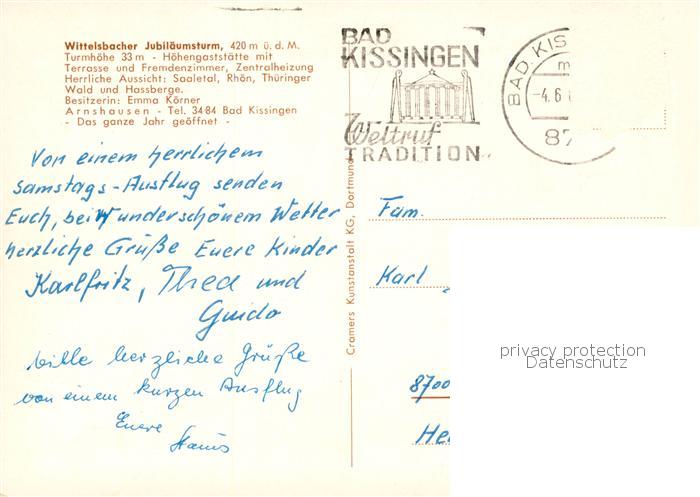 Wittelsbacher Jubiläumsturm, 420 m ü. d. M.
Turmhöhe 33 m - Höhengaststätte mit
Terrasse und Fremdenzimmer, Zentralheizung
Herrliche Aussicht: Saaletal, Rhön, Thüringer
Wald und Hassberge.
Besitzerin: Emma Körner
Arnshausen - Tel. 34 84 Bad Kissingen
- Das ganze Jahr geöffnet -
Von einem herrlichem
Samstags-Ausflug senden
Euch, bei wunderschönem Wetter
herzliche Grüße Euere Kinder
Karlfritz, Thea und
Guido
herzliche Grüße
von einem kurzen Ausflug
Euere
Cramers Kunstanstalt KG, Dortmund
BAD
KISSINGEN
Weltruf
TRADITION
BAD KIS
m
-4.6
87
Fam.
Karl
8700
He
privacy protection
Datenschutz